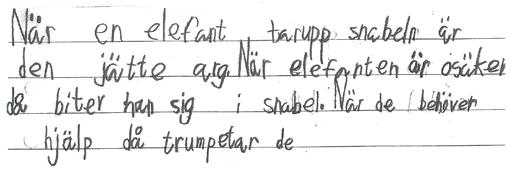 När en elefant tarupp snabeln är
den jätte arg. När elefanten är osäker
då biter han sig i snabel. När de behöver
hjälp då trumpetar de